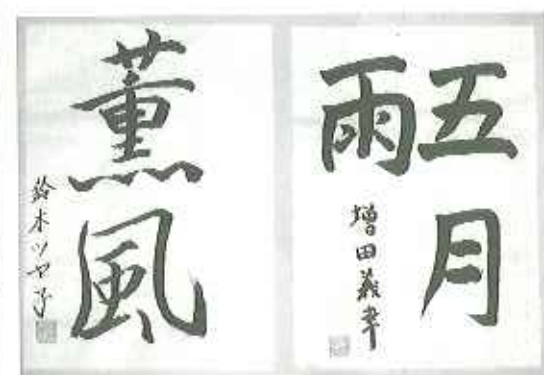 五月
雨
増田義幸
薫風
鈴木ツヤ子